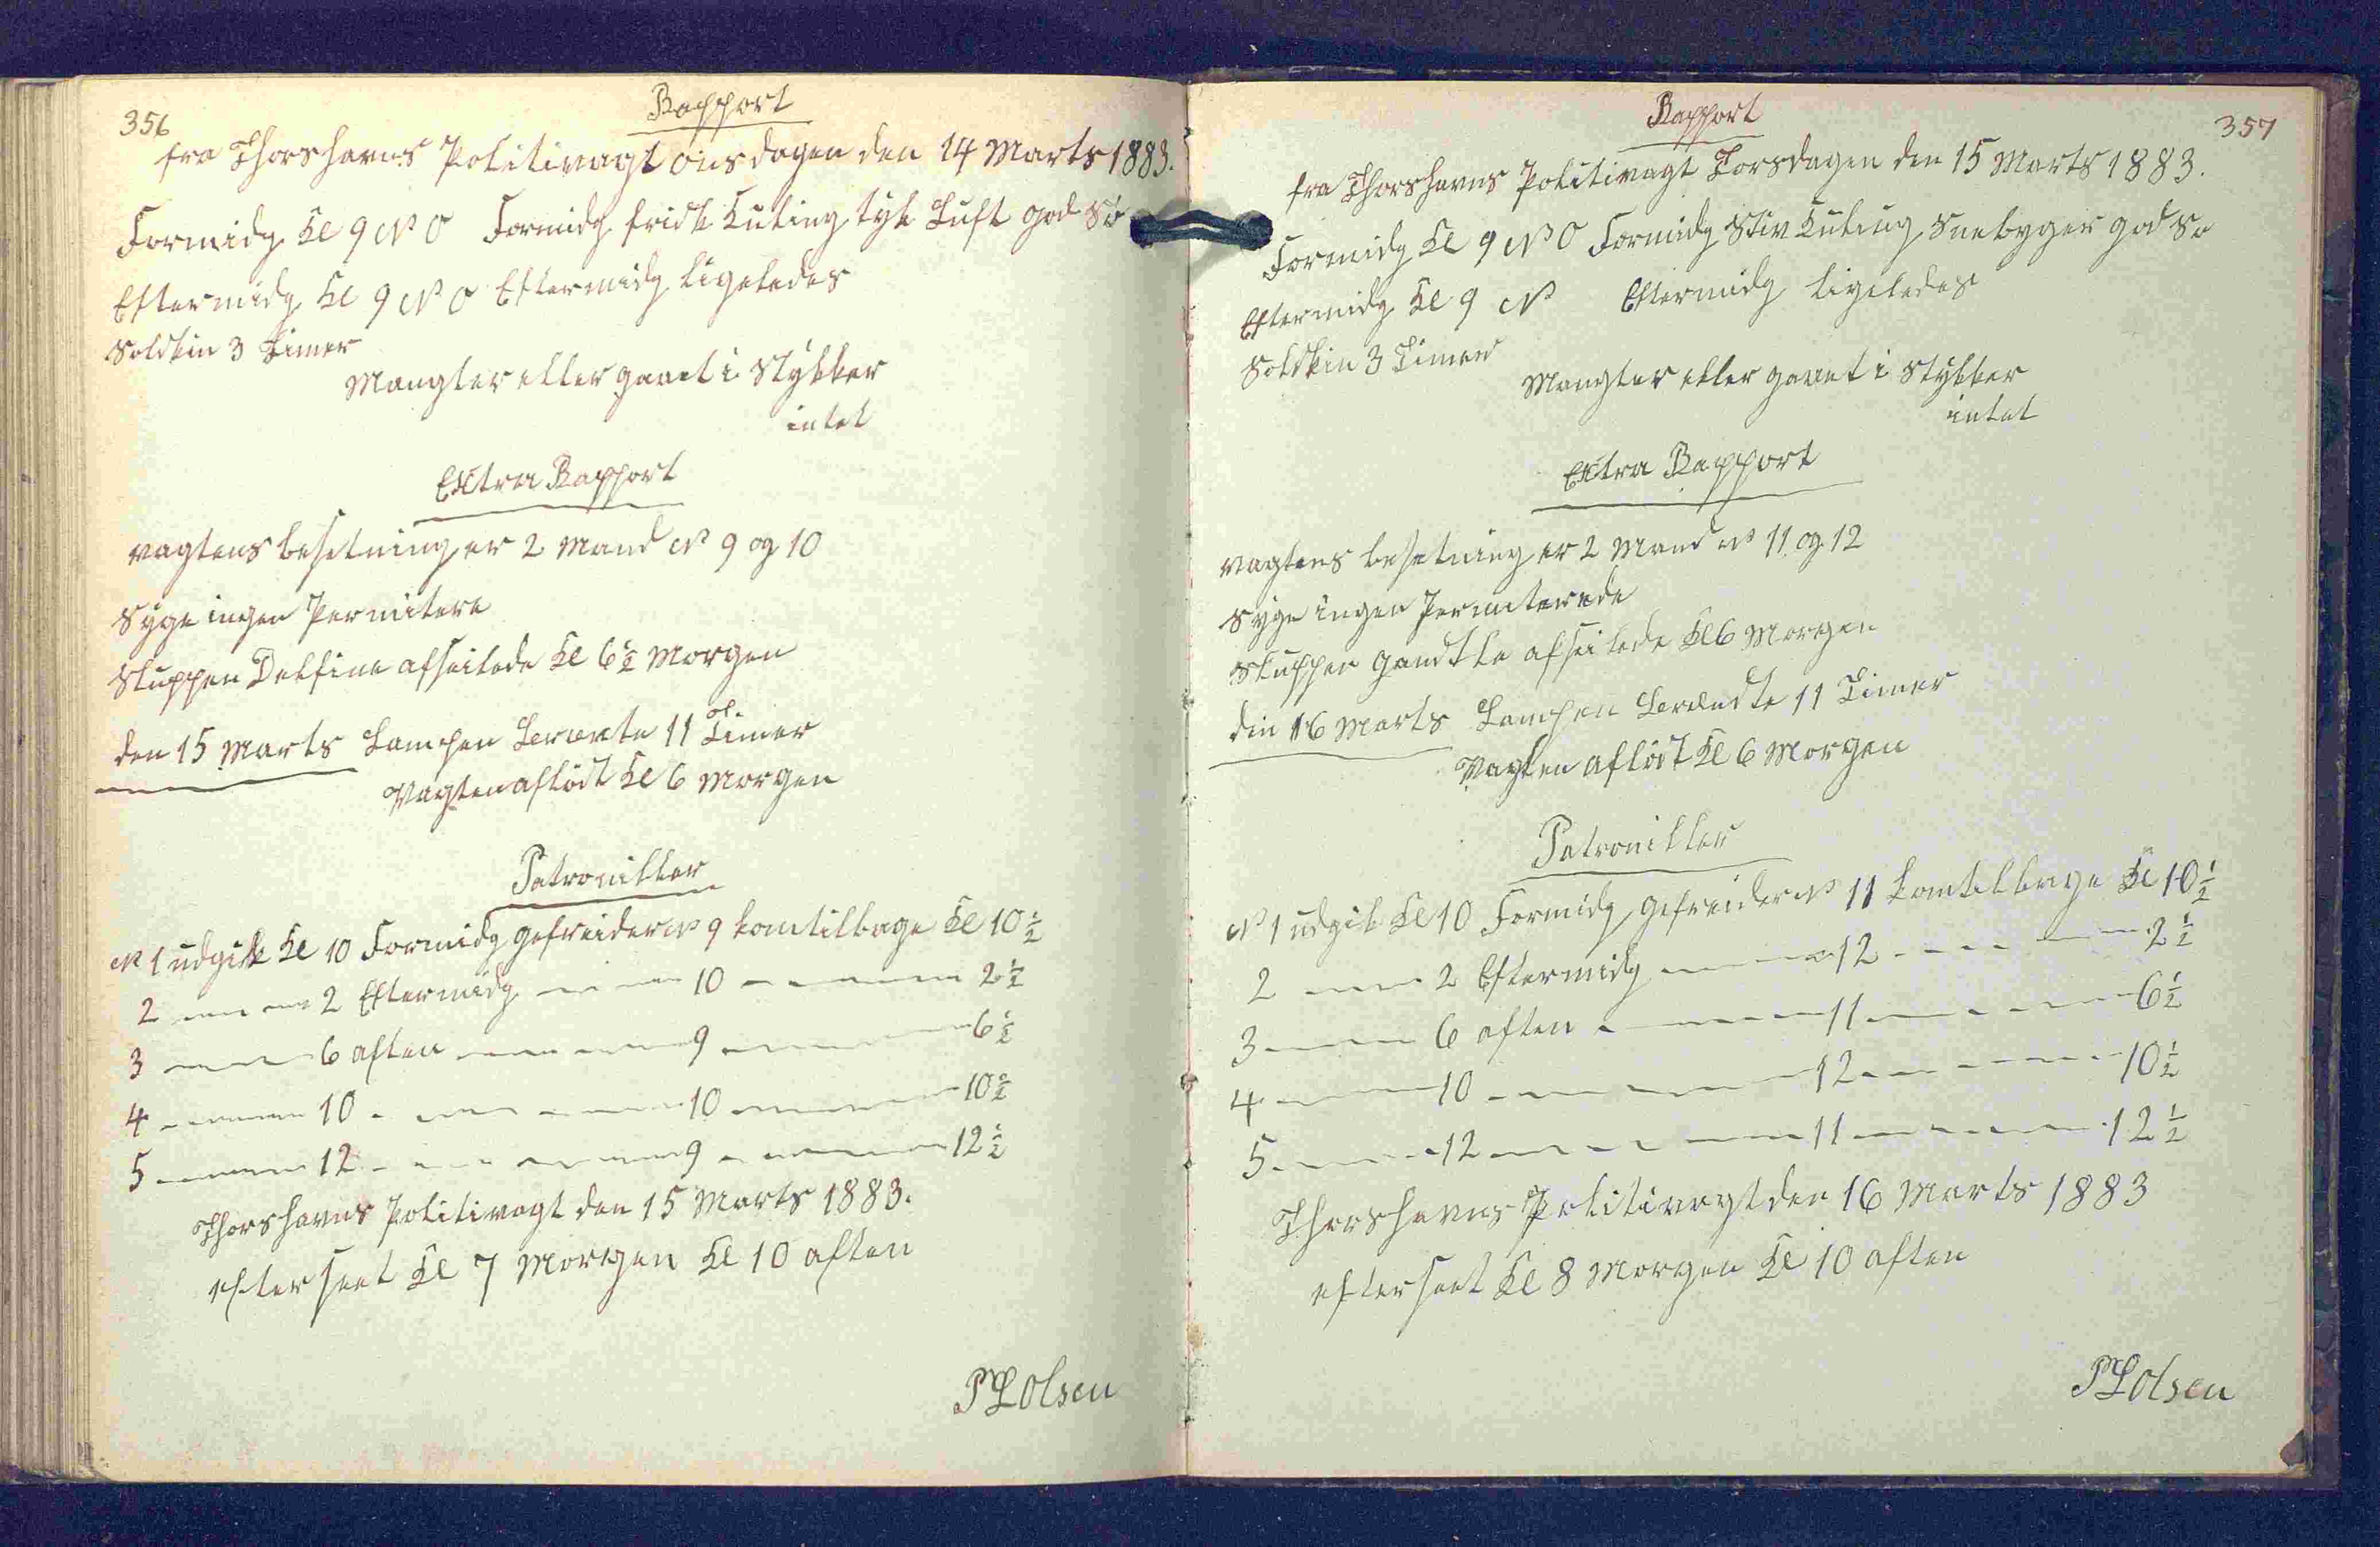 356
Rapport
fra Thorshavns Politivagt onsdagen den 14 Marts 1883.
Formidg Kl 9 N O Formidg fridsk Kuling tyk Luft god Sø
Eftermidg Kl 9 N O Eftermidg ligeledes
Solskin 3 Timer
Mangler eller gaaet i Stykker
intet
Extra Rapport
vagtens besetning er 2 Mand N 9 og 10
Syge ingen Permitere
Sluppen Delfine afseilede Kl 6½ Morgen
den 15 Marts Lampen 11 Timer
Vagten afløst Kl 6 Morgen
Patrouiller
N 1 udgik Kl 10 Formidg gefreider N 9 kom tilbage Kl 10½
2 — — 2 Eftermidg — — 10 — — — 2½
3 — — 6 aften — — 9 — — — 6½
4 — — 10 — — — 10 — — — 10½
5 — — 12 — — — 9 — — — 12½
Thorshavns Politivagt den 15 Marts 1883.
efterseet Kl 7 Morgen Kl 10 aften
P L Olsen
357
Rapport
fra Thorshavns Politivagt Torsdagen den 15 Marts 1883.
Formidg Kl 9 N O Formidg Stiv Kuling Snebyger god Sø
Eftermidg Kl 9 N Eftermidg ligeledes
Solskin 3 Timer
Mangler eller gaaet i Stykker
intet
Extra Rapport
vagtens besetning er 2 Mand N 11 og 12
Syge ingen Permiterede
Sluppen afseilede Kl 6 Morgen
den 16 Marts Lampen Brændte 11 Timer
Vagten afløst Kl 6 Morgen
Patrouiller
N 1 udgik Kl 10 Formidg gefreider N 11 kom tilbage Kl 10½
2 — — 2 Eftermidg — — 12 — — — 2½
3 — — 6 aften — — — 11 — — — 6½
4 — — 10 — — — 12 — — — 10½
5 — — 12 — — — 11 — — — 12½
Thorshavns Politivagt den 16 Marts 1883
efterseet Kl 8 Morgen Kl 10 aften
P L Olsen